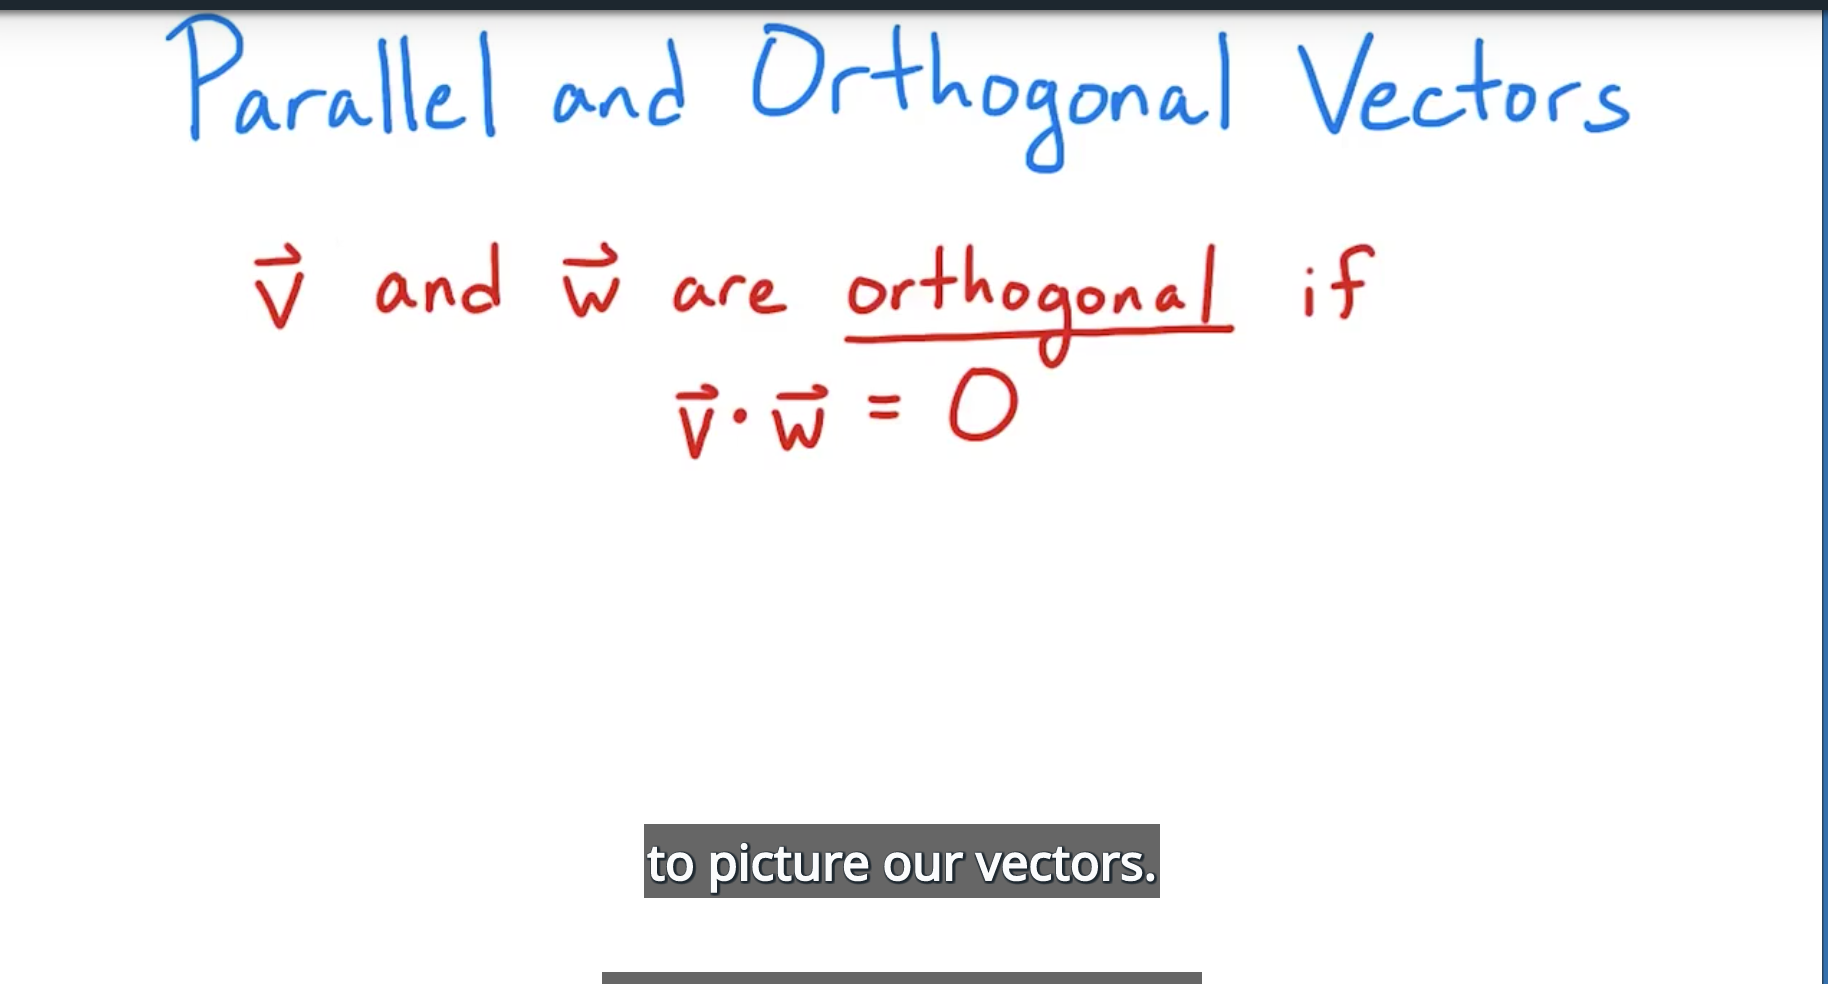 Parallel and Orthogonal Vectors
v⃗ and w⃗ are orthogonal if
v⃗ · w⃗ = 0
to picture our vectors.